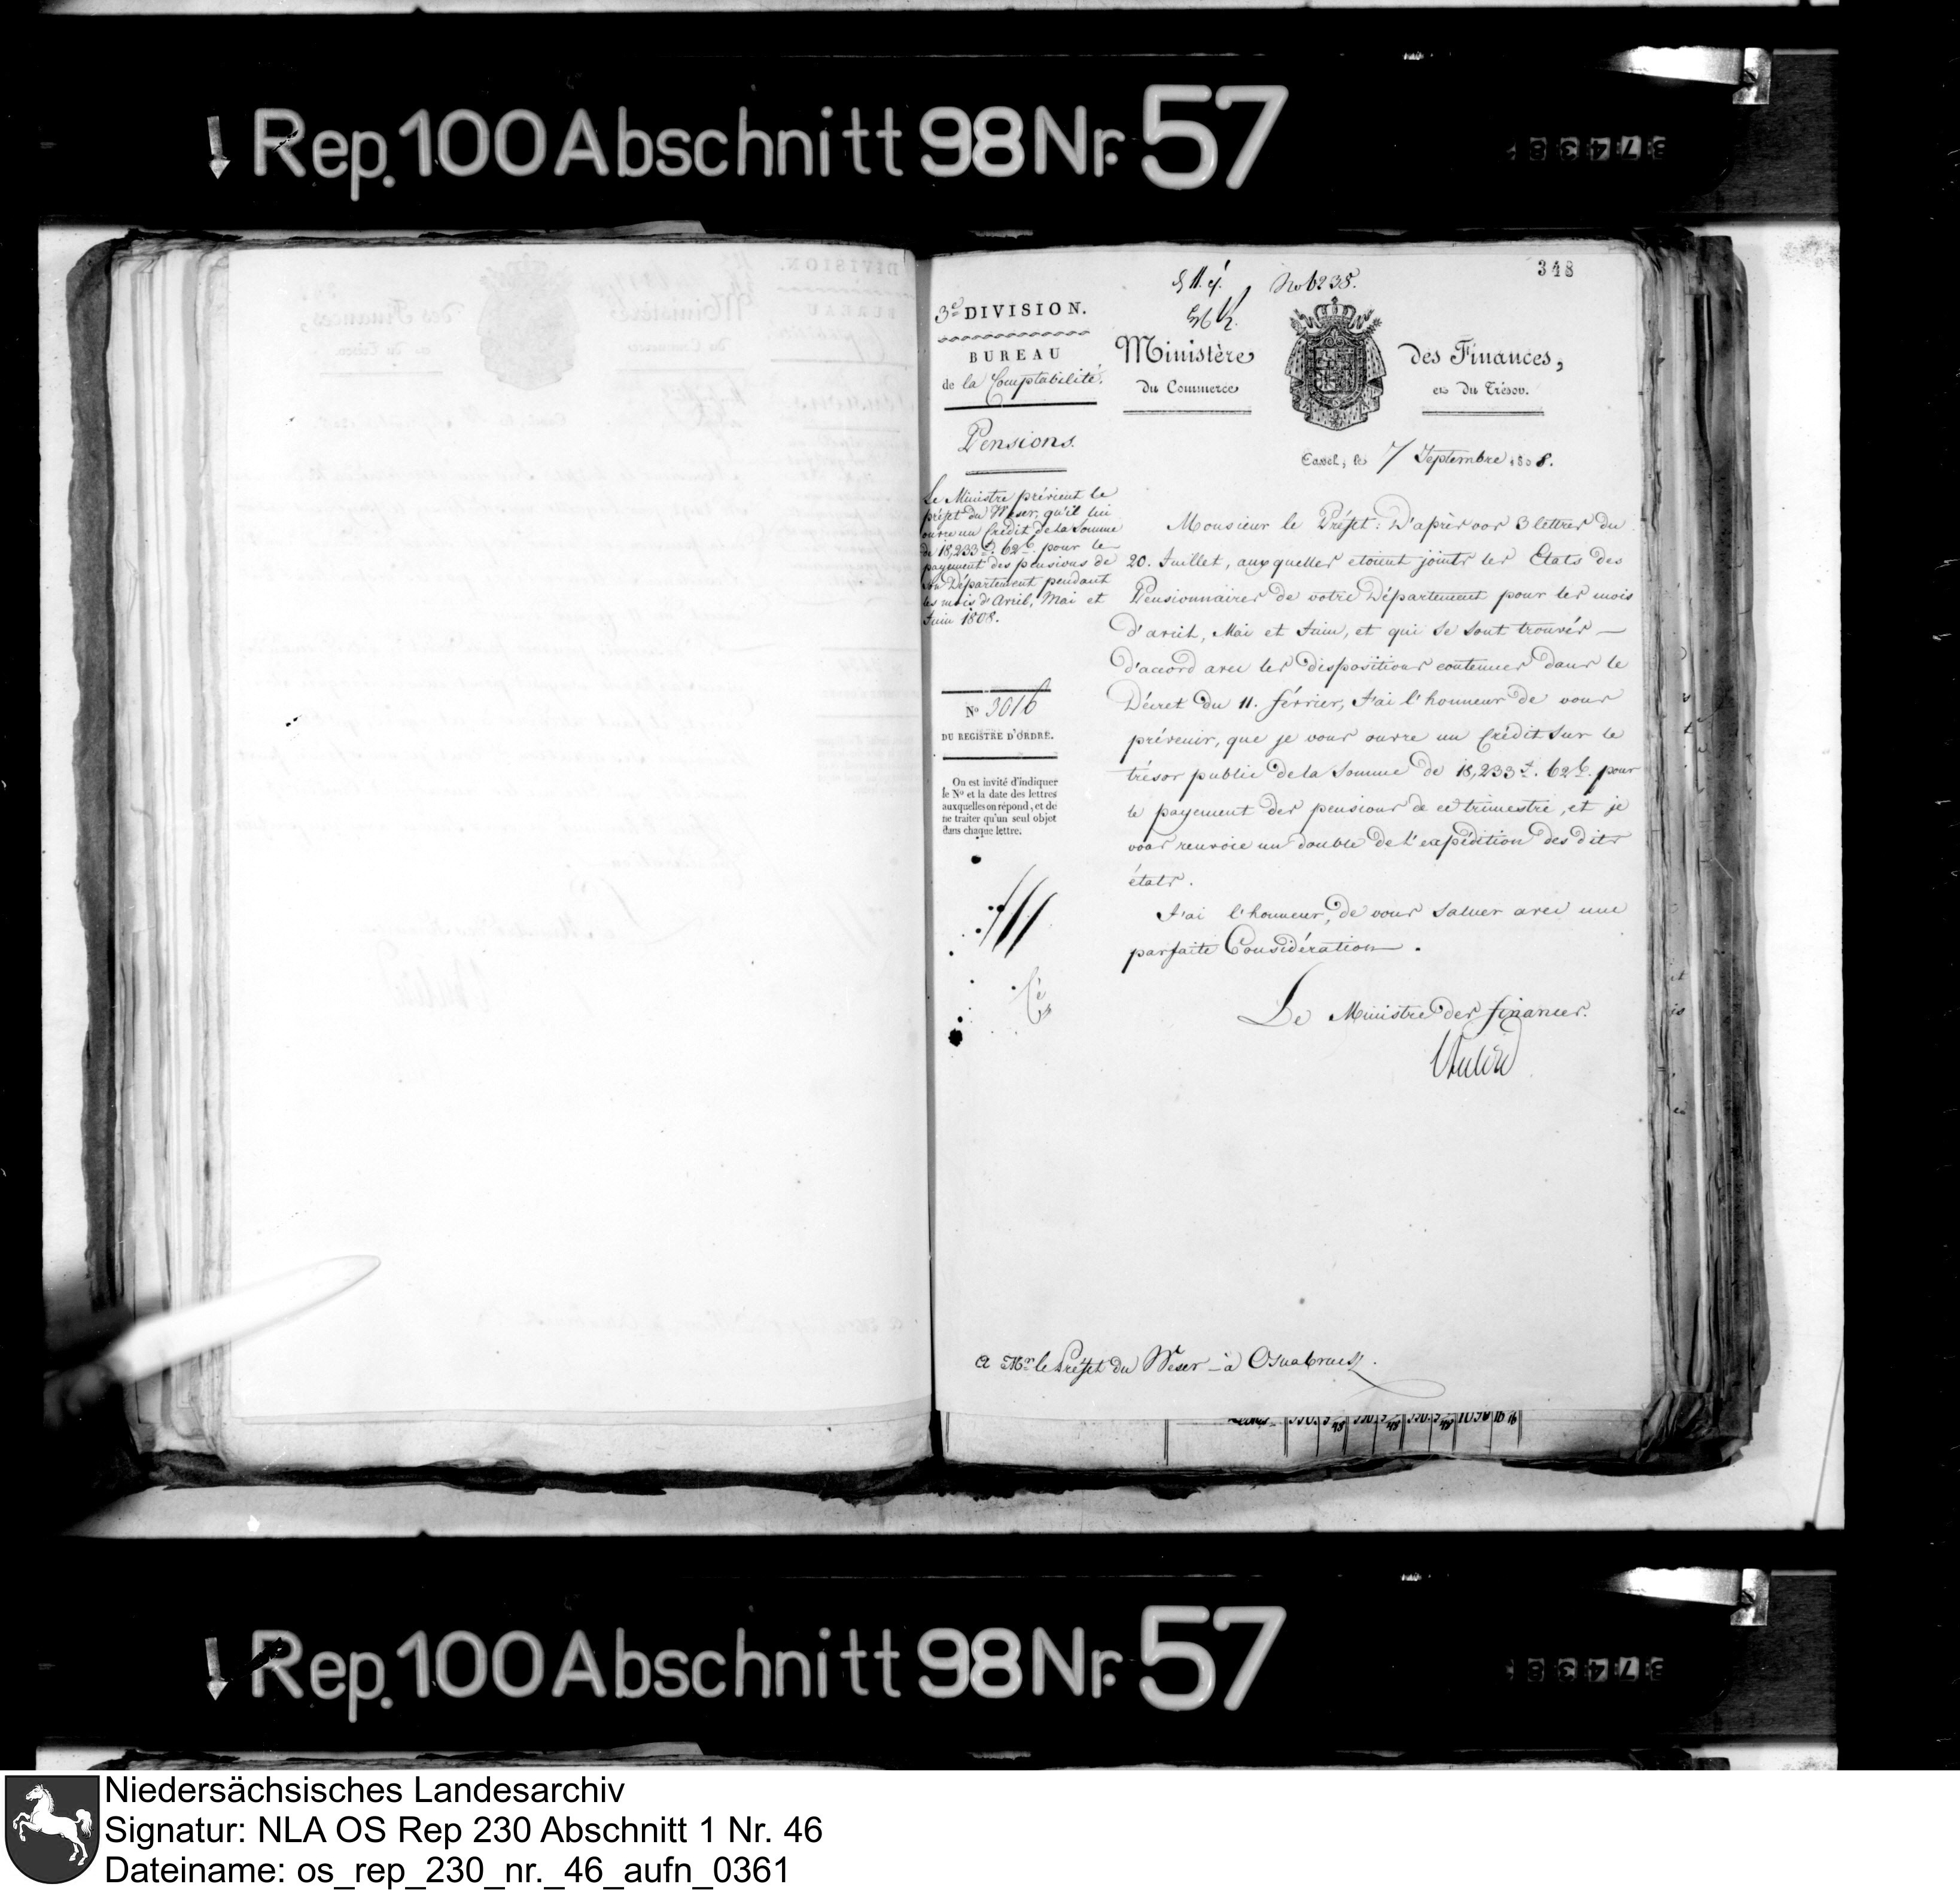 Rep. 100 Abschnitt 98 Nr. 57
348
No 6238.
3e DIVISION.
BUREAU
de la Comptabilité.
Pensions.
Ministère des Finances,
du Commerce et du Trésor.
Cassel, le 7 Septembre 1808.
Le Ministre prévient le
préfet du Weser, qu'il lui
ouvre un Crédit de la Somme
de 18,233 f. 62 c. pour le
payement des pensions de
son Département pendant
les mois d'Avril, Mai et
Juin 1808.
No 3016
DU REGISTRE D'ORDRE.
On est invité d'indiquer
le No et la date des lettres
auxquelles on répond, et de
ne traiter qu'un seul objet
dans chaque lettre.
Monsieur le Préfet: D'après vos 3 lettres du
20. Juillet, auxquelles etoient joints les Etats des
Pensionnaires de votre Département pour les mois
d'avril, Mai et Juin, et qui se sont trouvés
d'accord avec les dispositions contenues dans le
Décret du 11. février, J'ai l'honneur de vous
prévenir, que je vous ouvre un Crédit sur le
trésor public de la Somme de 18,233 f. 62 c. pour
le payement des pensions de ce trimestre, et je
vous renvoie un double de l'expédition des dits
états.
J'ai l'honneur, de vous saluer avec une
parfaite Considération.
Le Ministre des finances.
A Mr. le Préfet du Weser à Osnabruck.
Rep. 100 Abschnitt 98 Nr. 57
Niedersächsisches Landesarchiv
Signatur: NLA OS Rep 230 Abschnitt 1 Nr. 46
Dateiname: os_rep_230_nr._46_aufn_0361